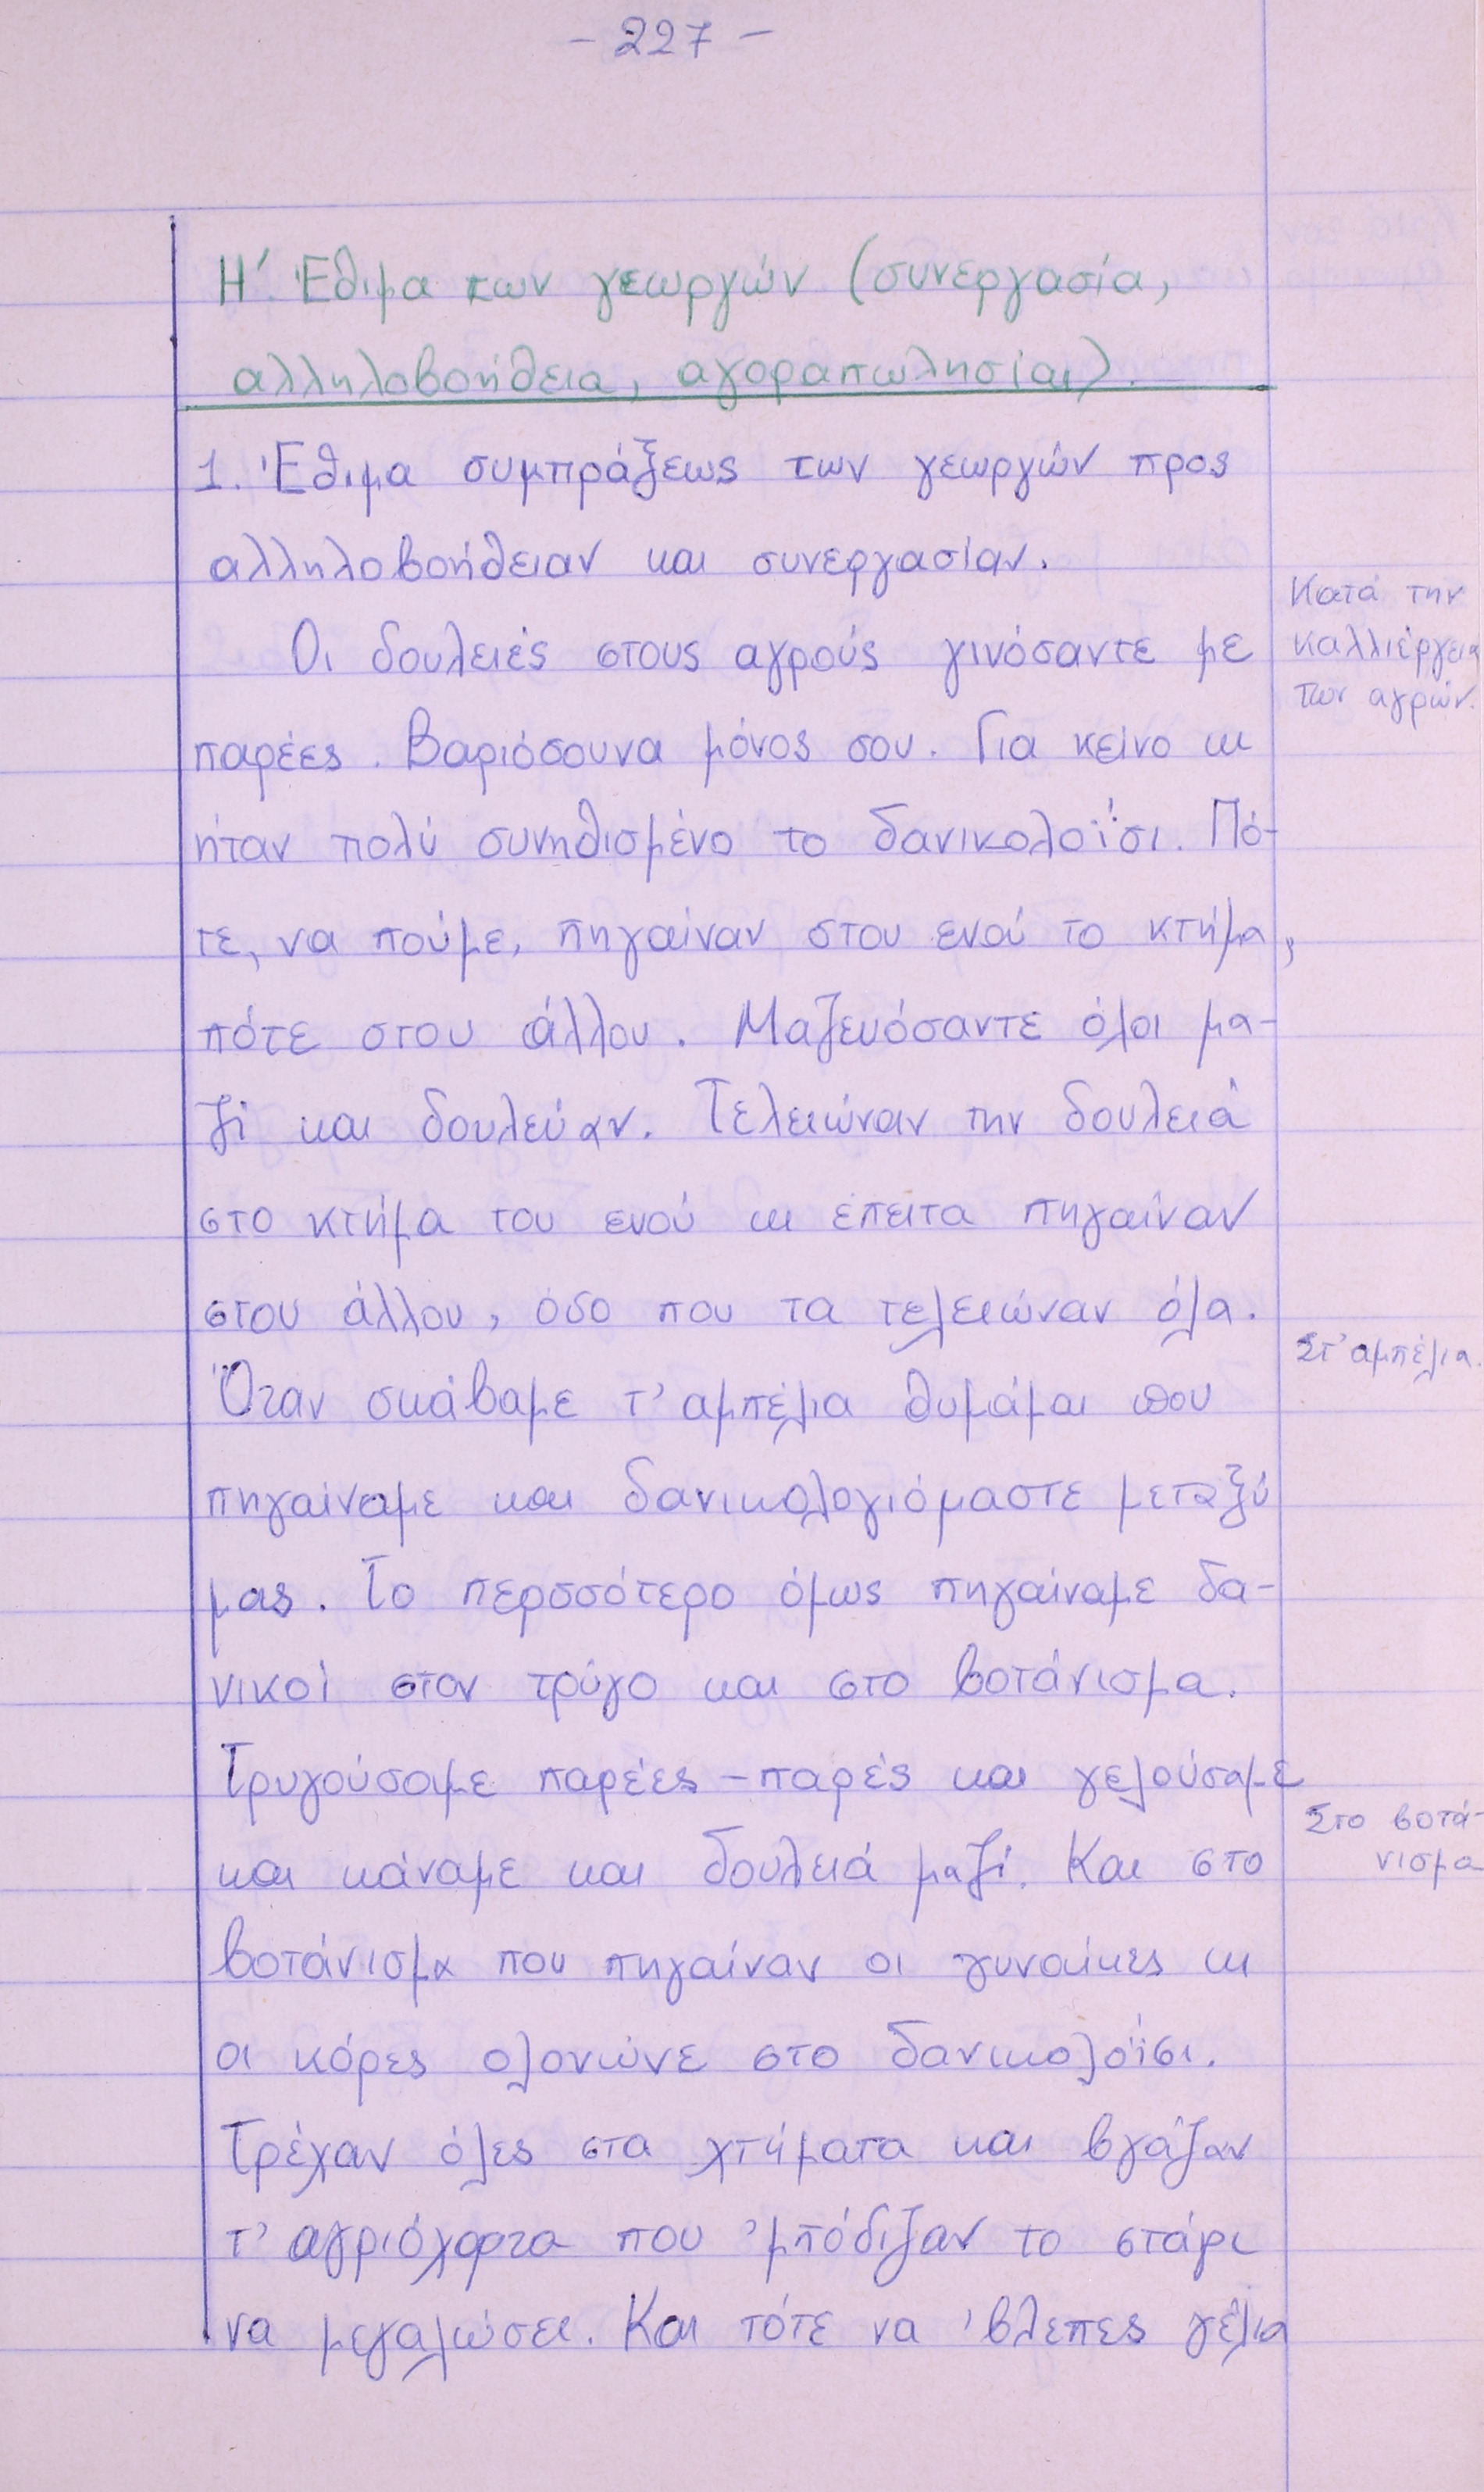 - 227 -
Η΄ Έθιμα των γεωργών (συνεργασία,
αλληλοβοήθεια, αγοραπωλησίαι).
1. Έθιμα συμπράξεως των γεωργών προς
αλληλοβοήθειαν και συνεργασίαν.
Κατά την
Οι δουλειές στους αγρούς γινόσαντε με
καλλιέργεια
των αγρών.
παρέες. Βαριόσουνα μόνος σου. Για κείνο κι
ήταν πολύ συνηθισμένο το δανικολοΐσι. Πό-
τε, να πούμε, πηγαίναν στου ενού το κτήμα,
πότε στου άλλου. Μαζευόσαντε όλοι μα-
ζί και δουλεύαν. Τελειώναν την δουλειά
στο κτήμα του ενού κι έπειτα πηγαίναν
στου άλλου, όσο που τα τελειώναν όλα.
Στ' αμπέλια.
Όταν σκάβαμε τ' αμπέλια θυμάμαι που
πηγαίναμε και δανικολογιόμαστε μεταξύ
μας. Το περσσότερο όμως πηγαίναμε δα-
νικοί στον τρύγο και στο βοτάνισμα.
Τρυγούσαμε παρέες - παρές και γελούσαμε
Στο βοτά-
νισμα
και κάναμε και δουλειά μαζί. Και στο
βοτάνισμα που πηγαίναν οι γυναίκες κι
οι κόρες ολονώνε στο δανικολοΐσι.
Τρέχαν όλες στα χτήματα και βγάζαν
τ' αγριόχορτα που 'μπόδιζαν το στάρι
να μεγαλώσει. Και τότε να 'βλεπες γέλια